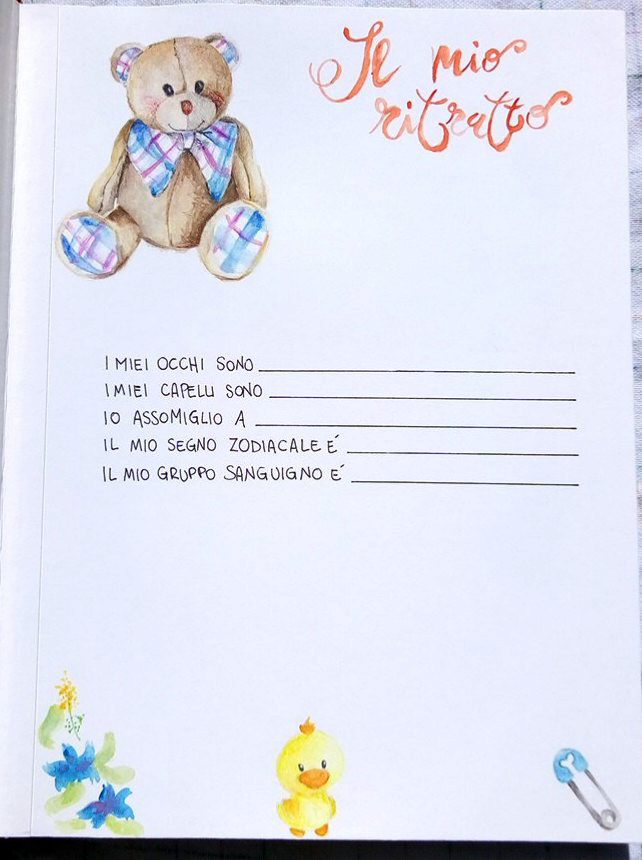 Il mio
ritratto
I MIEI OCCHI SONO
I MIEI CAPELLI SONO
IO ASSOMIGLIO A
IL MIO SEGNO ZODIACALE E´
IL MIO GRUPPO SANGUIGNO E´